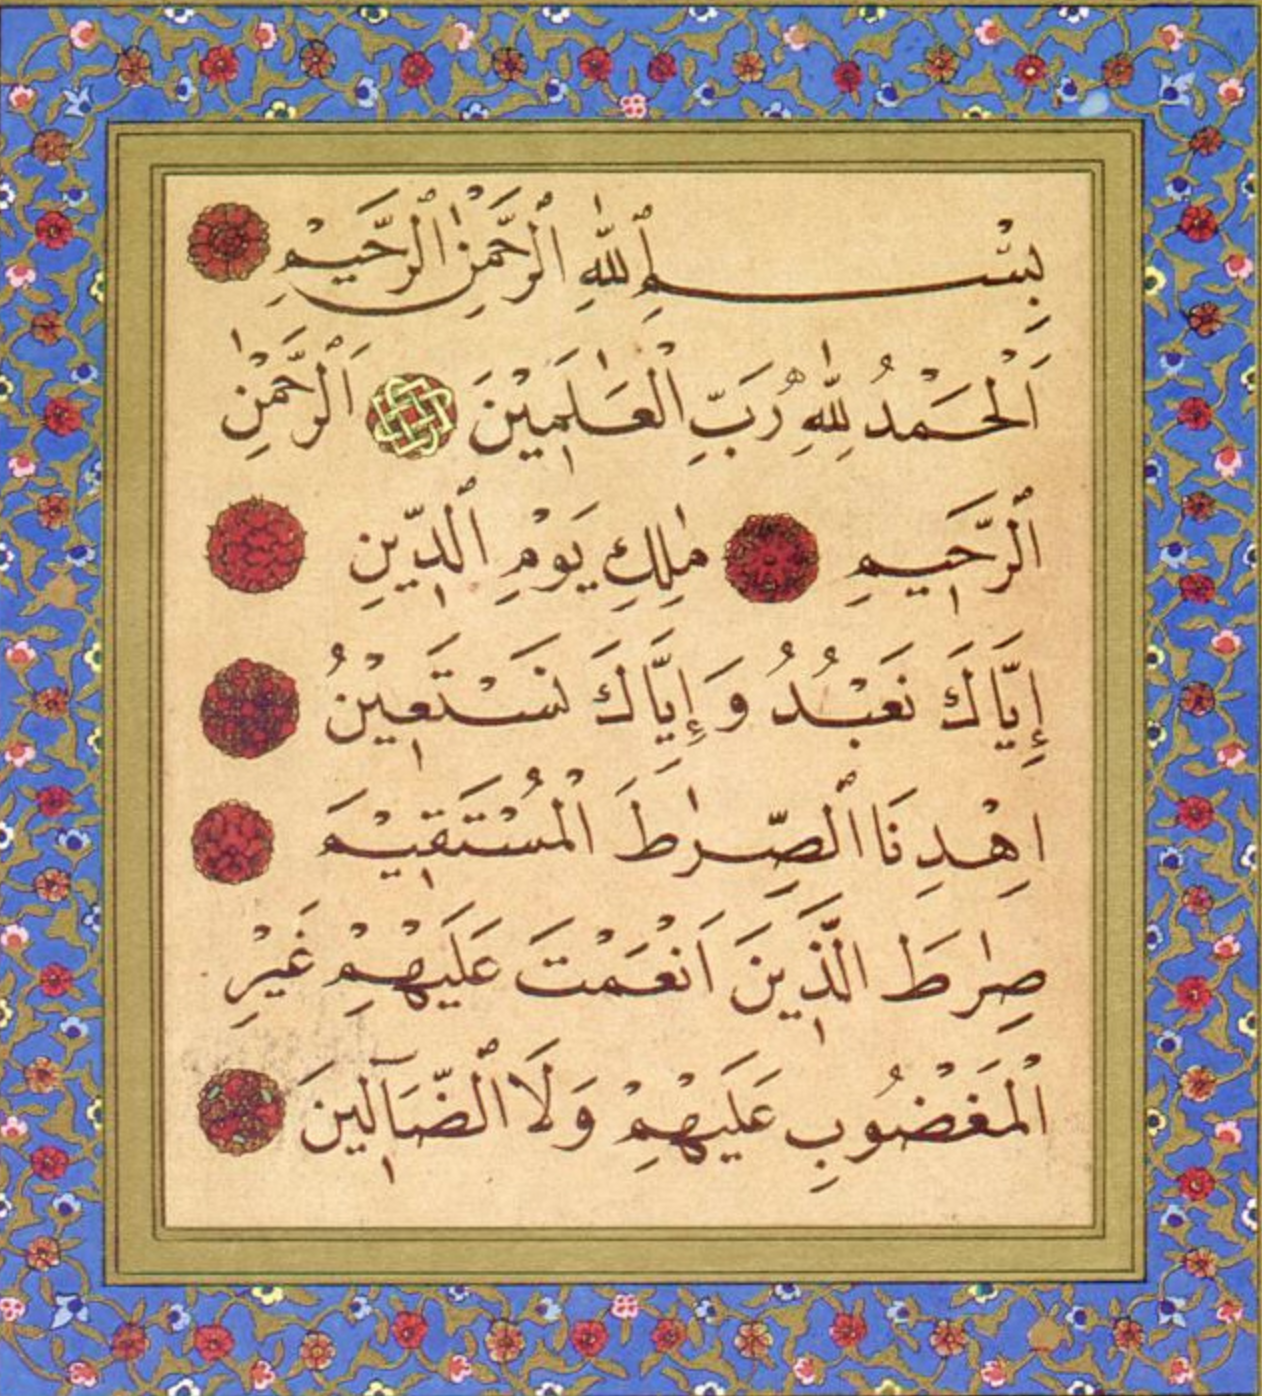 بِسْمِ ٱللّٰهِ ٱلرَّحْمٰنِ ٱلرَّحٖيمِ
اَلْحَمْدُ لِلّٰهِ رَبِّ الْعَالَمٖينَ اَلرَّحْمٰنِ
ٱلرَّحٖيمِ مٰلِكِ يَوْمِ الدّٖينِ
إِيَّاكَ نَعْبُدُ وَإِيَّاكَ نَسْتَعٖينُ
اِهْدِنَا ٱلصِّرٰطَ الْمُسْتَقٖيمَ
صِرٰطَ الَّذٖينَ اَنْعَمْتَ عَلَيْهِمْ غَيْرِ
الْمَغْضُوبِ عَلَيْهِمْ وَلَا ٱلضَّآلّٖينَ